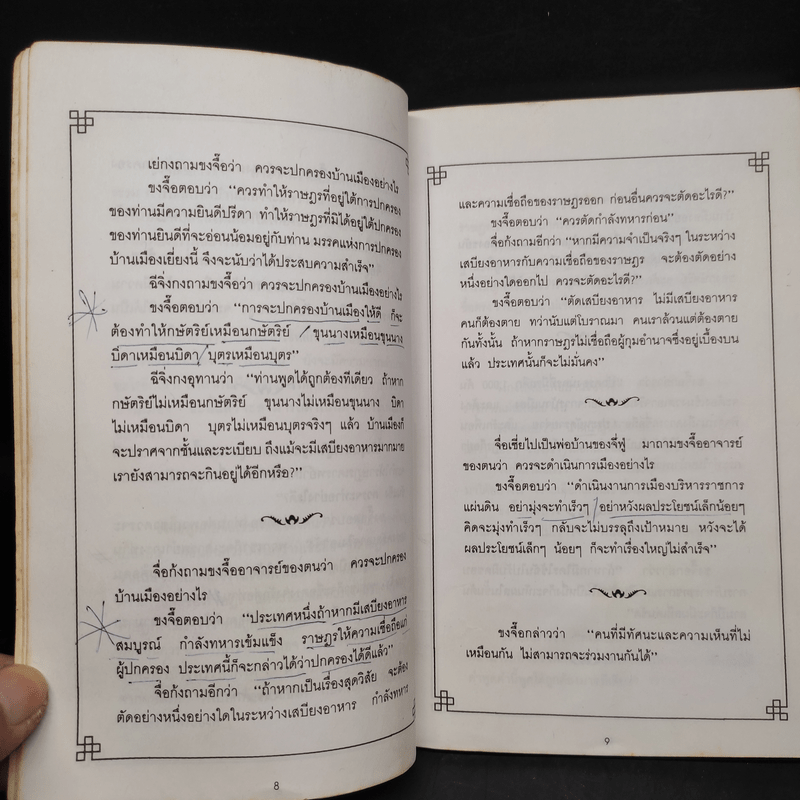 เย่กงถามขงจื๊อว่า ควรจะปกครองบ้านเมืองอย่างไร
ขงจื๊อตอบว่า “ควรทำให้ราษฎรที่อยู่ใต้การปกครอง
ของท่านมีความยินดีปรีดา ทำให้ราษฎรที่มิได้อยู่ใต้ปกครอง
ของท่านยินดีที่จะอ่อนน้อมอยู่กับท่าน มรรคแห่งการปกครอง
บ้านเมืองเยี่ยงนี้ จึงจะนับว่าได้ประสบความสำเร็จ”
ฉีจิ่งกงถามขงจื๊อว่า ควรจะปกครองบ้านเมืองอย่างไร
ขงจื๊อตอบว่า “การจะปกครองบ้านเมืองให้ดี ก็จะ
ต้องทำให้กษัตริย์เหมือนกษัตริย์ ขุนนางเหมือนขุนนาง
บิดาเหมือนบิดา บุตรเหมือนบุตร”
ฉีจิ่งกงอุทานว่า “ท่านพูดได้ถูกต้องทีเดียว ถ้าหาก
กษัตริย์ไม่เหมือนกษัตริย์ ขุนนางไม่เหมือนขุนนาง บิดา
ไม่เหมือนบิดา บุตรไม่เหมือนบุตรจริงๆ แล้ว บ้านเมืองก็
จะปราศจากชั้นและระเบียบ ถึงแม้จะมีเสบียงอาหารมากมาย
เรายังสามารถจะกินอยู่ได้อีกหรือ?”
จื่อก้งถามขงจื๊ออาจารย์ของตนว่า ควรจะปกครอง
บ้านเมืองอย่างไร
ขงจื๊อตอบว่า “ประเทศหนึ่งถ้าหากมีเสบียงอาหาร
สมบูรณ์ กำลังทหารเข้มแข็ง ราษฎรให้ความเชื่อถือแก่
ผู้ปกครอง ประเทศนี้ก็จะกล่าวได้ว่าปกครองได้ดีแล้ว”
จื่อก้งถามอีกว่า “ถ้าหากเป็นเรื่องสุดวิสัย จะต้อง
ตัดอย่างหนึ่งอย่างใดในระหว่างเสบียงอาหาร กำลังทหาร
8
และความเชื่อถือของราษฎรออก ก่อนอื่นควรจะตัดอะไรดี?”
ขงจื๊อตอบว่า “ควรตัดกำลังทหารก่อน”
จื่อก้งถามอีกว่า “หากมีความจำเป็นจริงๆ ในระหว่าง
เสบียงอาหารกับความเชื่อถือของราษฎร จะต้องตัดอย่าง
หนึ่งอย่างใดออกไป ควรจะตัดอะไรดี?”
ขงจื๊อตอบว่า “ตัดเสบียงอาหาร ไม่มีเสบียงอาหาร
คนก็ต้องตาย ทว่านับแต่โบราณมา คนเราล้วนแต่ต้องตาย
กันทั้งนั้น ถ้าหากราษฎรไม่เชื่อถือผู้กุมอำนาจซึ่งอยู่เบื้องบน
แล้ว ประเทศนั้นก็จะไม่มั่นคง”
จื่อเซี่ยไปเป็นพ่อบ้านของจี๋ฟู่ มาถามขงจื๊ออาจารย์
ของตนว่า ควรจะดำเนินการเมืองอย่างไร
ขงจื๊อตอบว่า “ดำเนินงานการเมืองบริหารราชการ
แผ่นดิน อย่ามุ่งจะทำเร็วๆ อย่าหวังผลประโยชน์เล็กน้อยๆ
คิดจะมุ่งทำเร็วๆ กลับจะไม่บรรลุถึงเป้าหมาย หวังจะได้
ผลประโยชน์เล็กๆ น้อยๆ ก็จะทำเรื่องใหญ่ไม่สำเร็จ”
ขงจื๊อกล่าวว่า “คนที่มีทัศนะและความเห็นที่ไม่
เหมือนกัน ไม่สามารถจะร่วมงานกันได้”
9